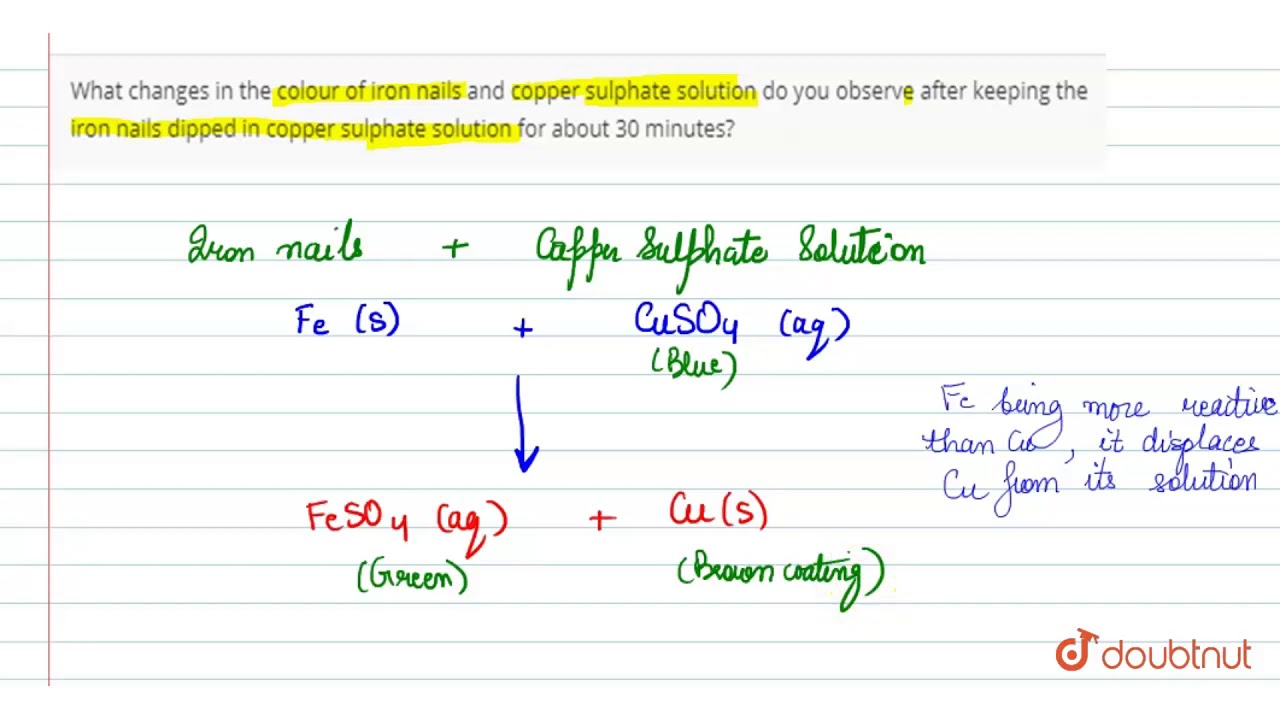 What changes in the colour of iron nails and copper sulphate solution do you observe after keeping the
iron nails dipped in copper sulphate solution for about 30 minutes?
Iron nails + Copper Sulphate Solution
Fe (s) + CuSO4 (aq)
(Blue)
Fe being more reactive
than Cu, it displaces
Cu from its solution
FeSO4 (aq) + Cu (s)
(Green) (Brown coating)
doubtnut